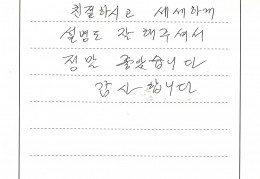 친절하시고 세세하게
설명도 잘 해주셔서
정말 좋았습니다
감사합니다